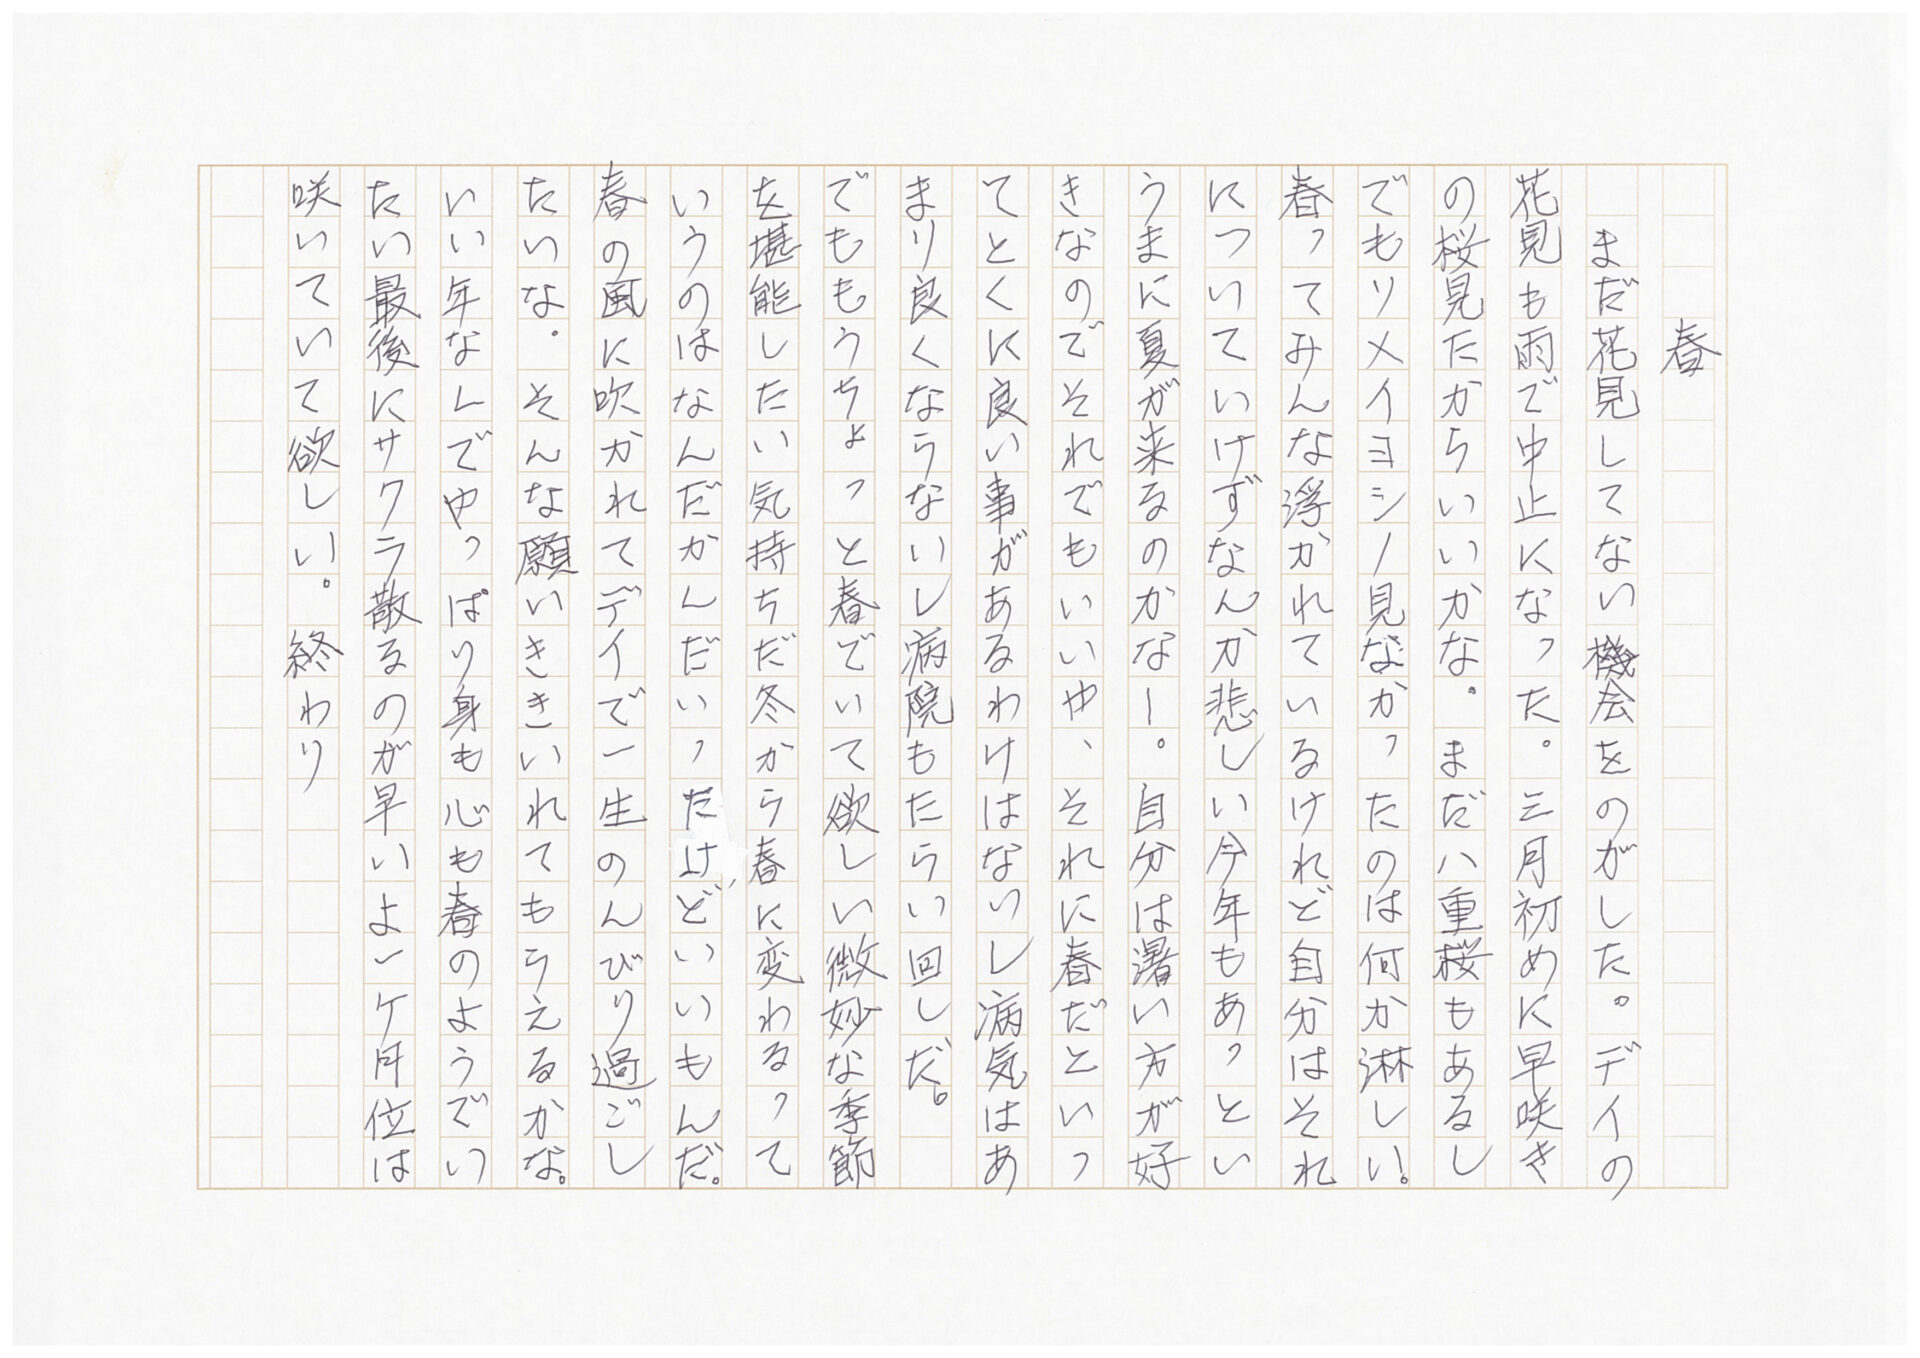 春
まだ花見してない機会をのがした。デイの
花見も雨で中止になった。三月初めに早咲き
の桜見たからいいかな。まだ八重桜もあるし
でもソメイヨシノ見なかったのは何か淋しい。
春ってみんな浮かれているけれど自分はそれ
についていけずなんか悲しい今年もあっとい
うまに夏が来るのかなー。自分は暑い方が好
きなのでそれでもいいや、それに春だといっ
てとくに良い事があるわけはないし病気はあ
まり良くならないし病院もたらい回しだ。
でももうちょっと春でいて欲しい微妙な季節
を堪能したい気持ちだ冬から春に変わるって
いうのはなんだかんだいったけど、いいもんだ。
春の風に吹かれてデイで一生のんびり過ごし
たいな。そんな願いききいれてもらえるかな。
いい年なんでやっぱり身も心も春のようでい
たい最後にサクラ散るのが早いよ一ケ月位は
咲いていて欲しい。終わり